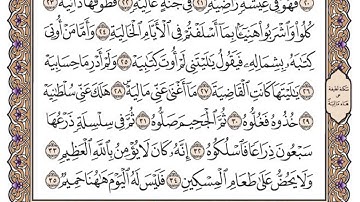 ٢٠ فَهُوَ فِى عِيشَةٍ رَّاضِيَةٍ ٢١ فِى جَنَّةٍ عَالِيَةٍ ٢٢ قُطُوفُهَا دَانِيَةٌ ٢٣
كُلُوا۟ وَٱشْرَبُوا۟ هَنِيٓـًٔۢا بِمَآ أَسْلَفْتُمْ فِى ٱلْأَيَّامِ ٱلْخَالِيَةِ ٢٤ وَأَمَّا مَنْ أُوتِىَ
كِتَٰبَهُۥ بِشِمَالِهِۦ فَيَقُولُ يَٰلَيْتَنِى لَمْ أُوتَ كِتَٰبِيَهْ ٢٥ وَلَمْ أَدْرِ مَا حِسَابِيَهْ
٢٦ يَٰلَيْتَهَا كَانَتِ ٱلْقَاضِيَةَ ٢٧ مَآ أَغْنَىٰ عَنِّى مَالِيَهْ ۜ ٢٨ هَلَكَ عَنِّى سُلْطَٰنِيَهْ
٢٩ خُذُوهُ فَغُلُّوهُ ٣٠ ثُمَّ ٱلْجَحِيمَ صَلُّوهُ ٣١ ثُمَّ فِى سِلْسِلَةٍ ذَرْعُهَا
سَبْعُونَ ذِرَاعًا فَٱسْلُكُوهُ ٣٢ إِنَّهُۥ كَانَ لَا يُؤْمِنُ بِٱللَّهِ ٱلْعَظِيمِ ٣٣
وَلَا يَحُضُّ عَلَىٰ طَعَامِ ٱلْمِسْكِينِ ٣٤ فَلَيْسَ لَهُ ٱلْيَوْمَ هَٰهُنَا حَمِيمٌ ٣٥